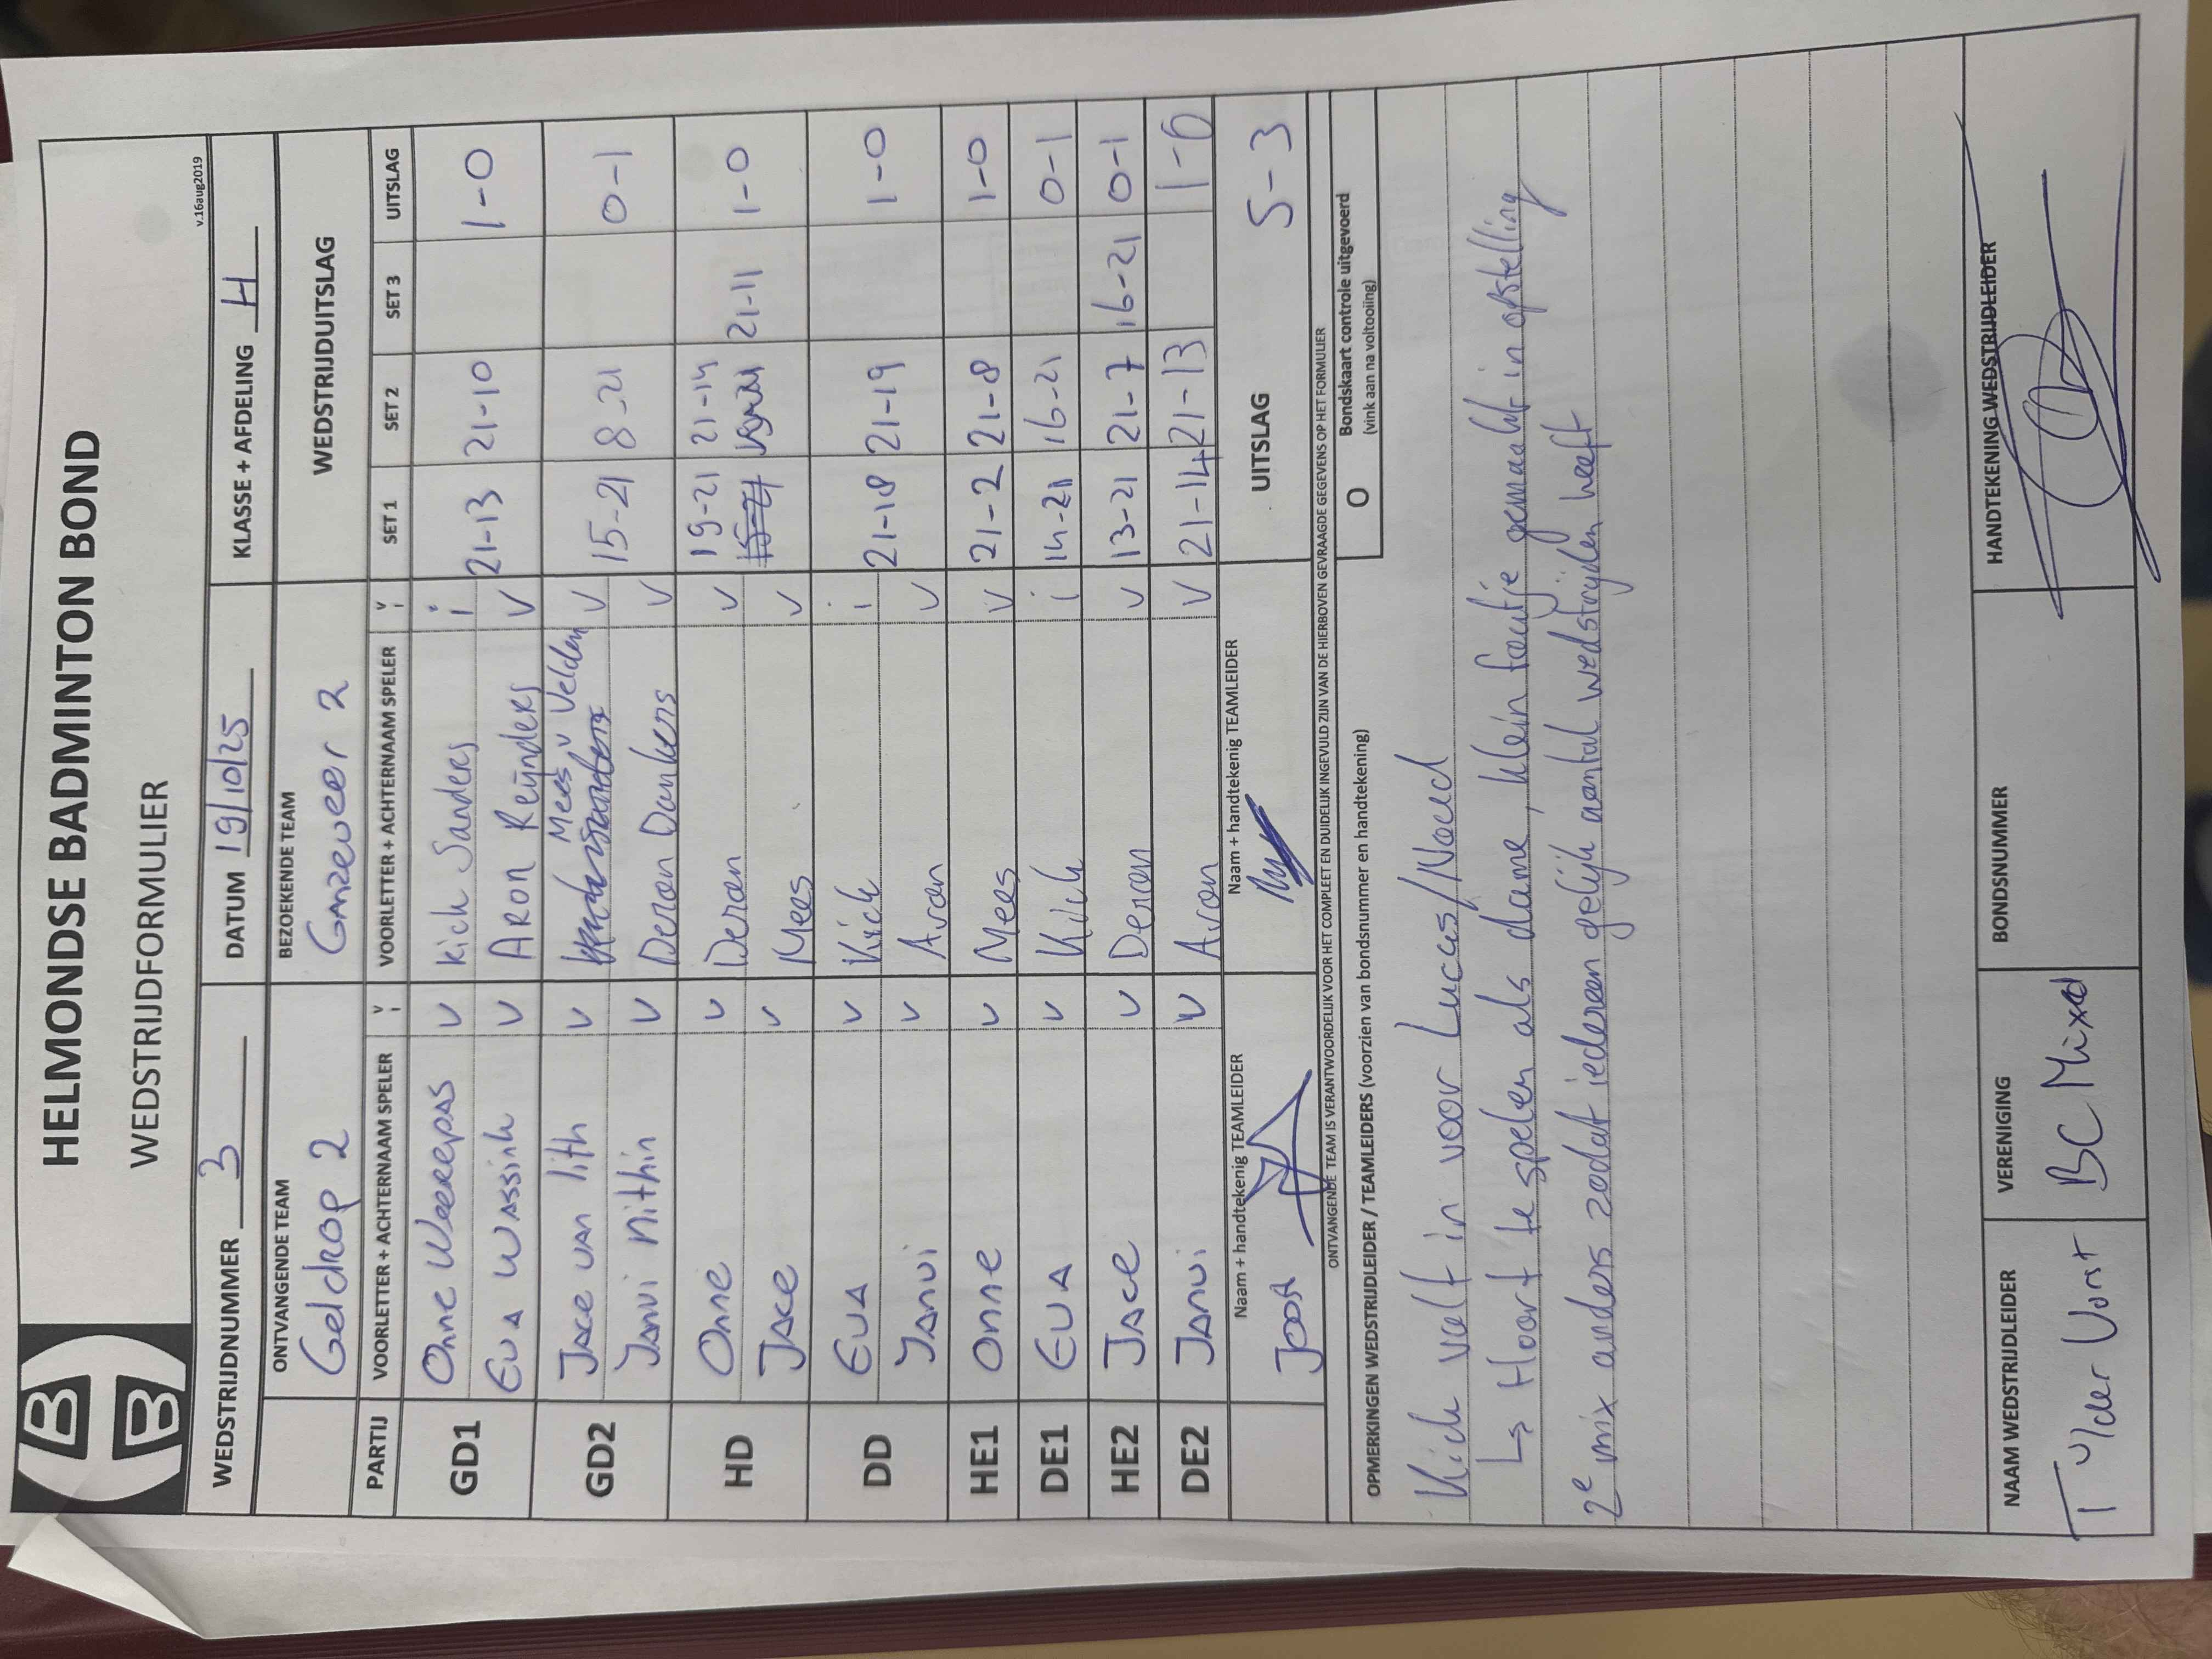 HELMONDSE BADMINTON BOND
WEDSTRIJDFORMULIER
v.16aug2019
WEDSTRIJDNUMMER 3 DATUM 19/10/25 KLASSE + AFDELING H
ONTVANGENDE TEAM BEZOEKENDE TEAM WEDSTRIJDUITSLAG
Geldrop 2 Ganzeveer 2
PARTIJ VOORLETTER + ACHTERNAAM SPELER V i VOORLETTER + ACHTERNAAM SPELER V i SET 1 SET 2 SET 3 UITSLAG
GD1 Onne Weerepas v Kich Sanders i 21-13 21-10 1-0
Eva Wassink v Aron Reijnders v
GD2 Jace van lith v Mees v Velden v 15-21 8-21 0-1
Janvi Nithin v Deron Dankers v
HD Onne v Deron v 19-21 21-14 21-11 1-0
Jace v Mees v
DD Eva v Kich i 21-18 21-19 1-0
Janvi v Aron v
HE1 Onne v Mees v 21-2 21-8 1-0
DE1 Eva v Kich i 14-21 16-21 0-1
HE2 Jace v Deron v 13-21 21-7 16-21 0-1
DE2 Janvi v Aron v 21-14 21-13 1-0
Naam + handtekenig TEAMLEIDER Naam + handtekenig TEAMLEIDER UITSLAG 5-3
Joost
ONTVANGENDE TEAM IS VERANTWOORDELIJK VOOR HET COMPLEET EN DUIDELIJK INGEVULD ZIJN VAN DE HIERBOVEN GEVRAAGDE GEGEVENS OP HET FORMULIER
OPMERKINGEN WEDSTRIJDLEIDER / TEAMLEIDERS (voorzien van bondsnummer en handtekening) O Bondskaart controle uitgevoerd
(vink aan na voltooiing)
Kich valt in voor Lucas/Noud
↳ Hoort te spelen als dame, klein foutje gemaakt in opstelling
2e mix anders zodat iedereen gelijk aantal wedstrijden heeft
NAAM WEDSTRIJDLEIDER VERENIGING BONDSNUMMER HANDTEKENING WEDSTRIJDLEIDER
BC Mixed